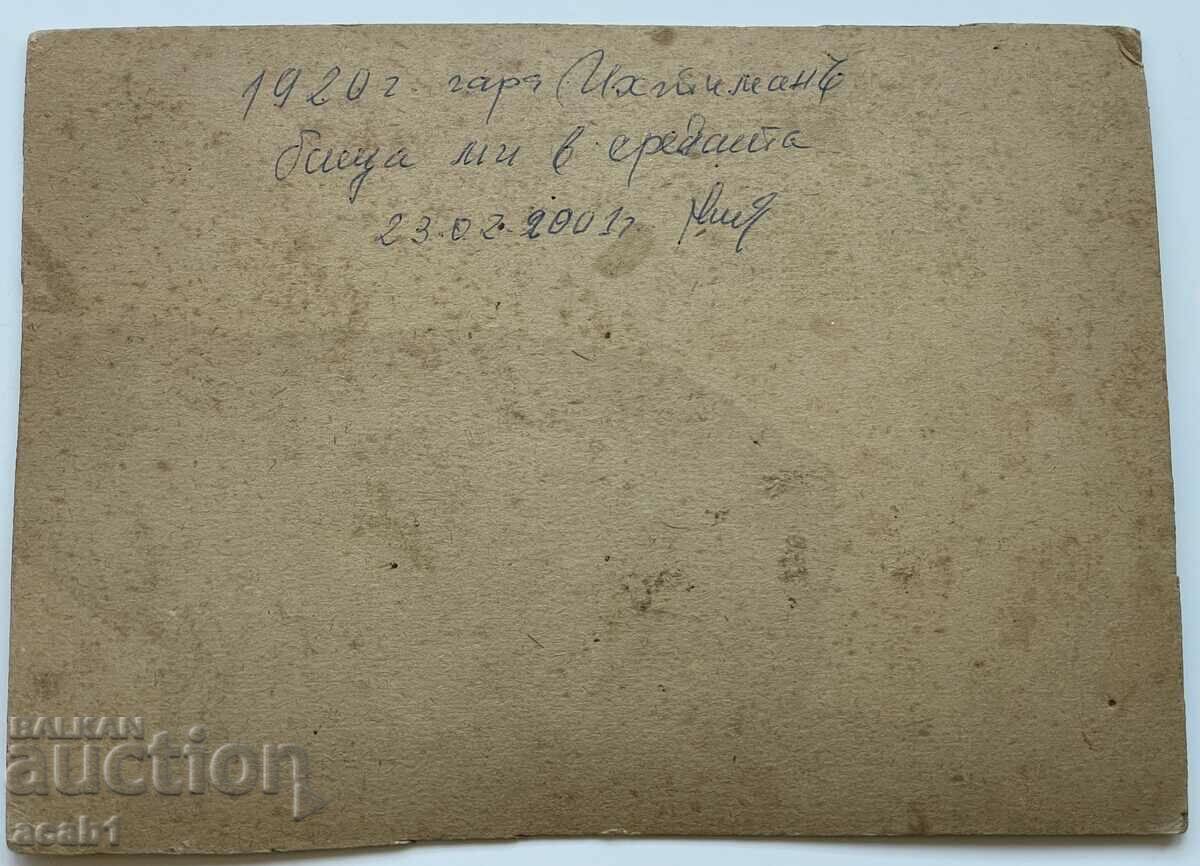 1920 г. гара Ихтиманъ
баща ми в средата
23.02.2001г.
BALKAN
auction
acab1